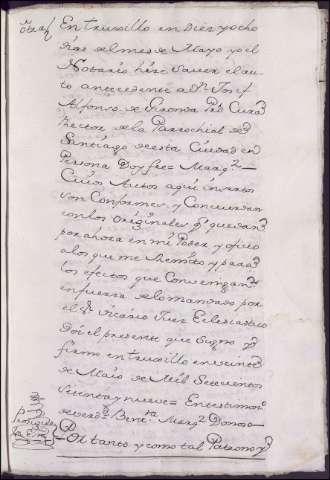 otraf En truxillo en diez y ocho
dias del mes de Mayo yo el
Notario hize saver el au-
to antecedente a Dn. Josef
Alfonso de Roa Pbro Cura
Rector de la Parrochial de
Santiago de esta Ciudad en
Persona Doy fee= Marqz.
Cuios Autos aqui insertos
son Conformes y Concuerdan
con los Originales qe. quedan
por ahora en mi Poder y oficio
a los que me Remito y para
los efectos que Convengan
en fuerza de lo mandado por
el Sr. Vicario Juez Eclesiastico
Doi el presente que Signo y
firmo en truxillo en veinte
de Maio de Mil Setecientos
Setenta y nueve= En testimonio
de verdd. Bento. Marqz. Donoso
Prosigue
Por tanto y como tal Patrono y